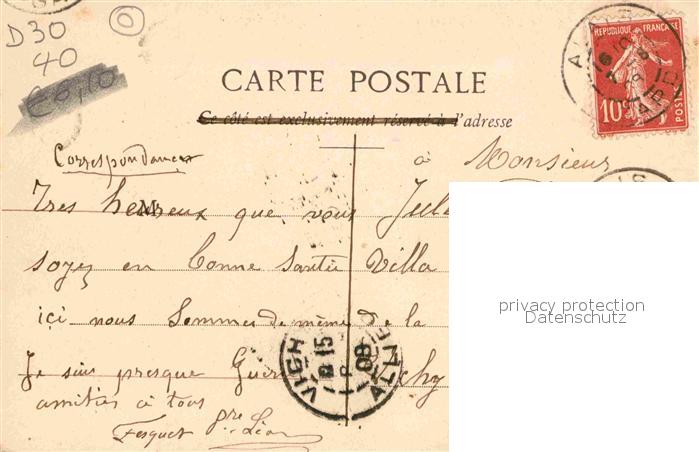 D30
40
€6,10
0
CARTE POSTALE
Ce côté est exclusivement réservé à l'adresse
REPUBLIQUE FRANÇAISE
10
POSTES
Correspondance
à Monsieur
Tres heureux que vous
soyez en bonne santée
ici nous sommes de même
Je suis presque
amitiés à tous
Fesquet Léon
Villa
de la
VICHY
15
08
ALLIER
privacy protection
Datenschutz